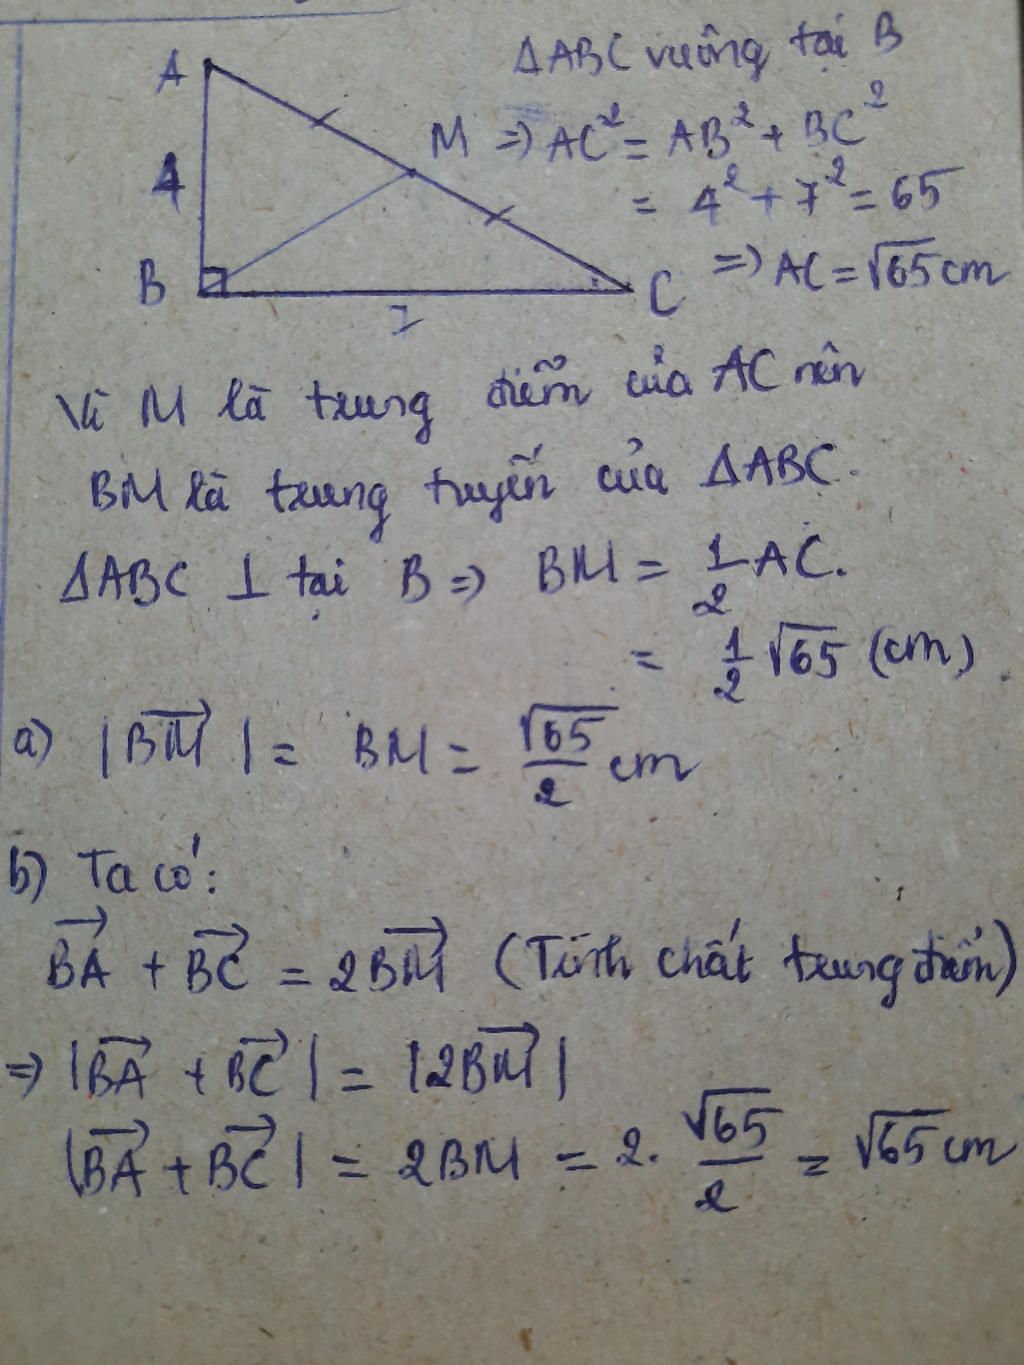 A
4
B
M
C
7
ΔABC vuông tại B
=> AC² = AB² + BC²
= 4² + 7² = 65
=> AC = √65 cm
Vì M là trung điểm của AC nên
BM là trung tuyến của ΔABC.
ΔABC ⊥ tại B => BM = 1/2 AC.
= 1/2 √65 (cm)
a) |BM→| = BM = √65/2 cm
b) Ta có:
BA→ + BC→ = 2BM→ (Tính chất trung điểm)
=> |BA→ + BC→| = |2BM→|
|BA→ + BC→| = 2BM = 2. √65/2 = √65 cm